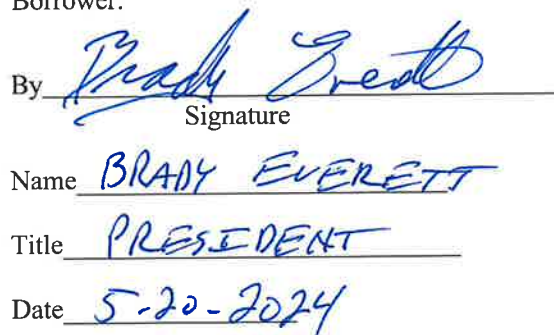 Borrower:
By Brady Everett
Signature
Name BRADY EVERETT
Title PRESIDENT
Date 5-20-2024